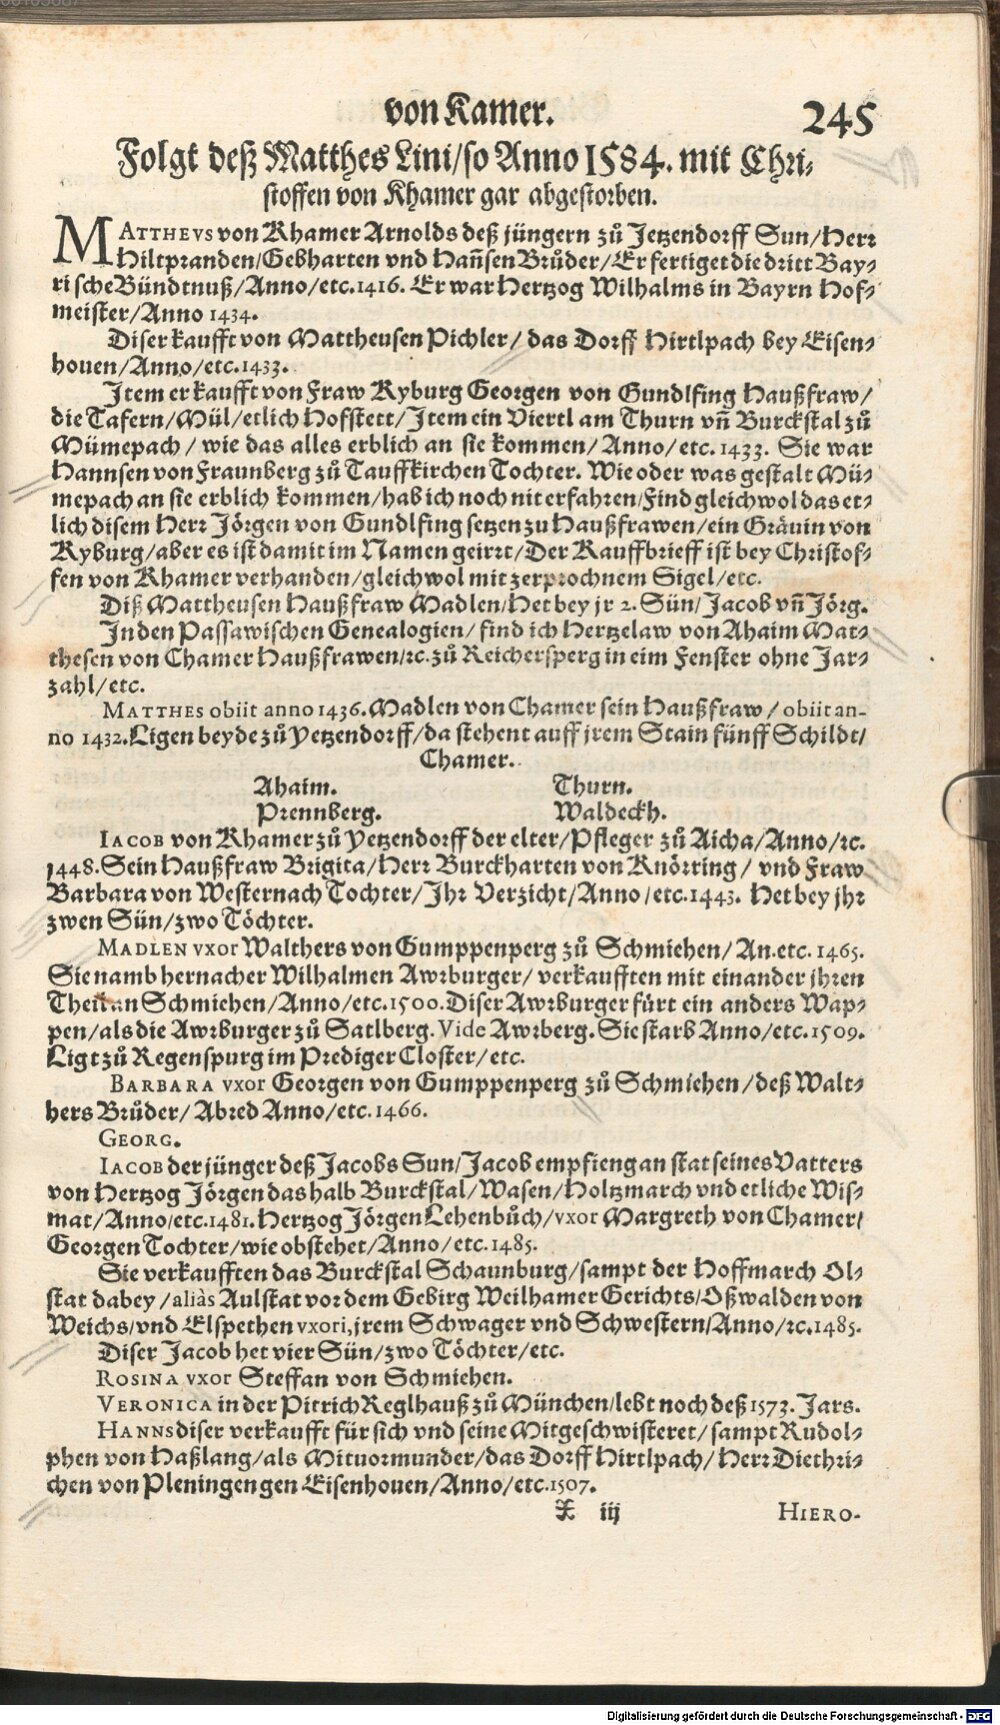 von Kamer. 245
Folgt deß Matthes Lini/so Anno 1584. mit Chri-
stoffen von Khamer gar abgestorben.
MATTHEVS von Khamer Arnolds deß jüngern zů Jetzendorff Sun/Herr
Hiltpranden/Gebharten vnd Hañsen Brůder/Er fertiget die dritt Bay-
rische Bündtnuß/Anno/etc.1416. Er war Hertzog Wilhalms in Bayrn Hof-
meister/Anno 1434.
Diser kaufft von Mattheusen Pichler/das Dorff Hirtlpach bey Eisen-
houen/Anno/etc.1433.
Jtem er kaufft von Fraw Kyburg Georgen von Gundlfing Haußfraw/
die Tafern/Mül/etlich Hofstett/Jtem ein Viertl am Thurn vñ Burckstal zů
Mümepach/wie das alles erblich an sie kommen/Anno/etc.1433. Sie war
Hannsen von Fraunberg zů Tauffkirchen Tochter. Wie oder was gestalt Mü-
mepach an sie erblich kommen/hab ich noch nit erfahren/Find gleichwol das et-
lich disem Herr Jörgen von Gundlfing setzen zu Haußfrawen/ein Grävin von
Kyburg/aber es ist damit im Namen geirrt/Der Kauffbrieff ist bey Christof-
fen von Khamer verhanden/gleichwol mit zerprochnem Sigel/etc.
Diß Mattheusen Haußfraw Madlen/Het bey jr 2. Sün/Jacob vñ Jörg.
In den Passawischen Genealogien/find ich Hertzelaw von Ahaim Mat-
thesen von Chamer Haußfrawen/ꝛc.zů Reichersperg in eim Fenster ohne Jar-
zahl/etc.
MATTHES obiit anno 1436. Madlen von Chamer sein Haußfraw/ obiit an-
no 1432. Ligen beyde zů Yetzendorff/da stehent auff jrem Stain fünff Schildt/
Chamer.
Ahaim. Thurn.
Prennberg. Waldeckh.
IACOB von Khamer zů Yetzendorff der elter/Pfleger zů Aicha/Anno/ꝛc.
1448. Sein Haußfraw Brigita/Herr Burckharten von Knörring/ vnd Fraw
Barbara von Westernach Tochter/Ihr Verzicht/Anno/etc.1443. Het bey jhr
zwen Sün/zwo Töchter.
MADLEN vxor Walthers von Gumppenperg zů Schmiehen/An.etc.1465.
Sie namb hernacher Wilhalmen Awrburger/ verkaufften mit einander jhren
Theil an Schmiehen/Anno/etc.1500. Diser Awrburger fürt ein anders Wap-
pen/als die Awrburger zů Satlberg. Vide Awrberg. Sie starb Anno/etc.1509.
Ligt zů Regenspurg im Prediger Closter/etc.
BARBARA vxor Georgen von Gumppenperg zů Schmiehen/deß Walt-
hers Brůder/Abred Anno/etc.1466.
GEORG.
IACOB der jünger deß Jacobs Sun/Jacob empfieng an stat seines Vatters
von Hertzog Jörgen das halb Burckstal/Wasen/Holtzmarch vnd etliche Wis-
mat/Anno/etc.1481. Hertzog Jörgen Lehenbůch/vxor Margreth von Chamer/
Georgen Tochter/wie obstehet/Anno/etc.1485.
Sie verkaufften das Burckstal Schaunburg/sampt der Hoffmarch Ol-
stat dabey/aliàs Aulstat vor dem Gebirg Weilhamer Gerichts/Oßwalden von
Weichs/vnd Elspethen vxori, jrem Schwager vnd Schwestern/Anno/ꝛc.1485.
Diser Jacob het vier Sün/zwo Töchter/etc.
ROSINA vxor Steffan von Schmiehen.
VERONICA in der Pitrich Reglhauß zů München/lebt noch deß 1573. Jars.
HANNS diser verkaufft für sich vnd seine Mitgeschwisteret/sampt Rudol-
phen von Haßlang/als Mituormunder/das Dorff Hirtlpach/Herr Diethri-
chen von Pleningen gen Eisenhouen/Anno/etc.1507.
X iij HIERO-
Digitalisierung gefördert durch die Deutsche Forschungsgemeinschaft - DFG